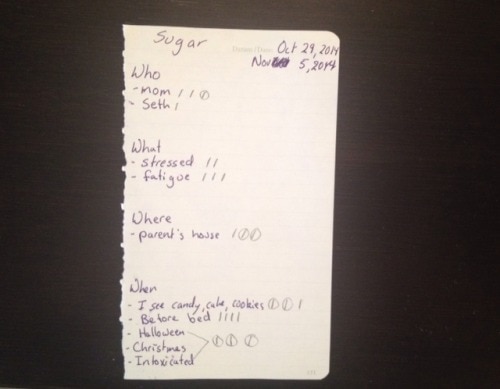 Sugar
Oct 29, 2014
Nov 5, 2014
Who
- mom / / Ⓘ
- Seth /
What
- stressed / /
- fatigue / / /
Where
- parent's house / Ⓘ Ⓘ
When
- I see candy, cake, cookies Ⓘ Ⓘ /
- Before bed / / / /
- Halloween
- Christmas Ⓘ Ⓘ Ⓘ
- Intoxicated